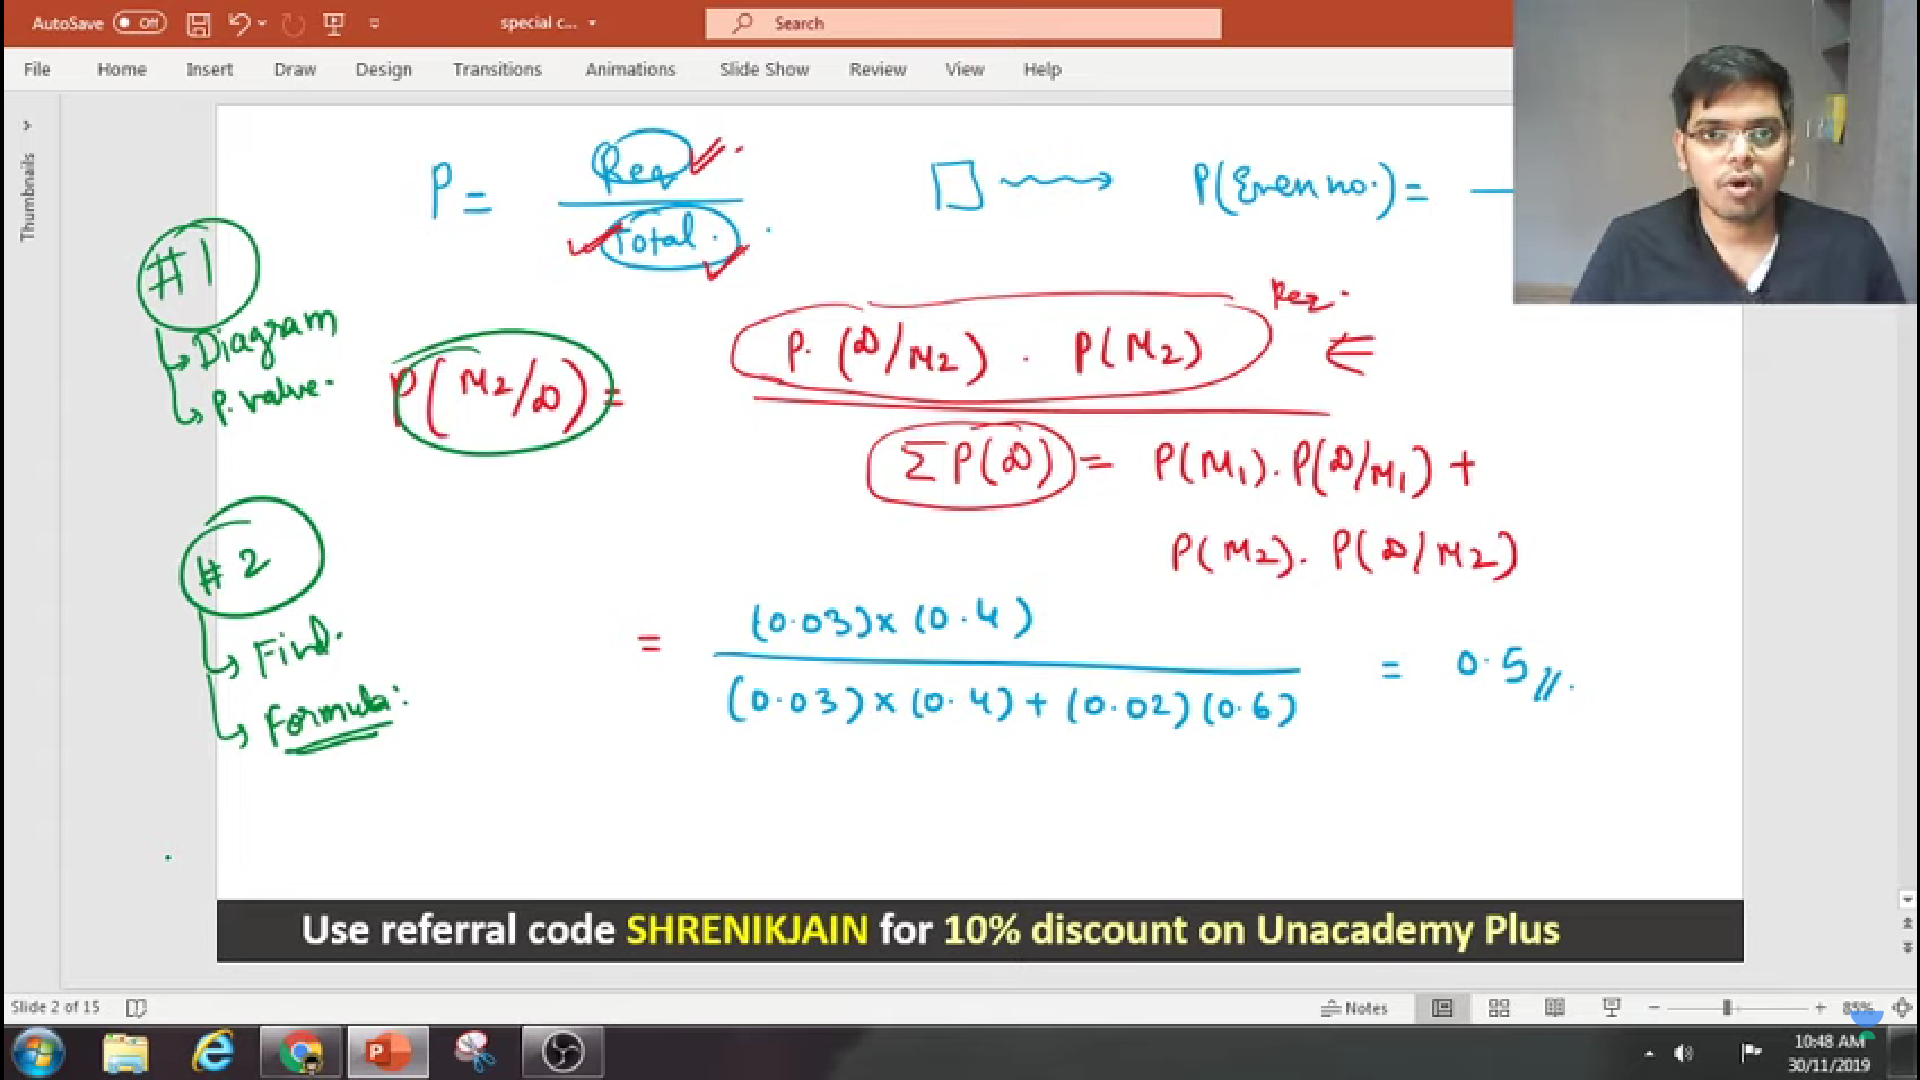 AutoSave Off special c... Search
File Home Insert Draw Design Transitions Animations Slide Show Review View Help
Thumbnails
P = Req / Total.
P(Even no.) =
#1
Diagram
P. value.
P(M2/D) = P.(D/M2) . P(M2) Req.
ΣP(D) = P(M1).P(D/M1) +
P(M2). P(D/M2)
#2
Find.
Formula:
= (0.03)x(0.4)
(0.03)x(0.4)+(0.02)(0.6) = 0.5//.
Use referral code SHRENIKJAIN for 10% discount on Unacademy Plus
Slide 2 of 15 Notes 85%
10:48 AM
30/11/2019